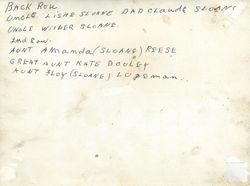 BACK ROW
UNCLE LISHE SLOANE DAD Claude SLOANE
UNCLE WILBER SLOANE.
2nd Row.
AUNT AMANDA (SLOANE) REESE
GREAT AUNT KATE DOOLEY
AUNT FLOY (SLOANE) LUPEMAN..